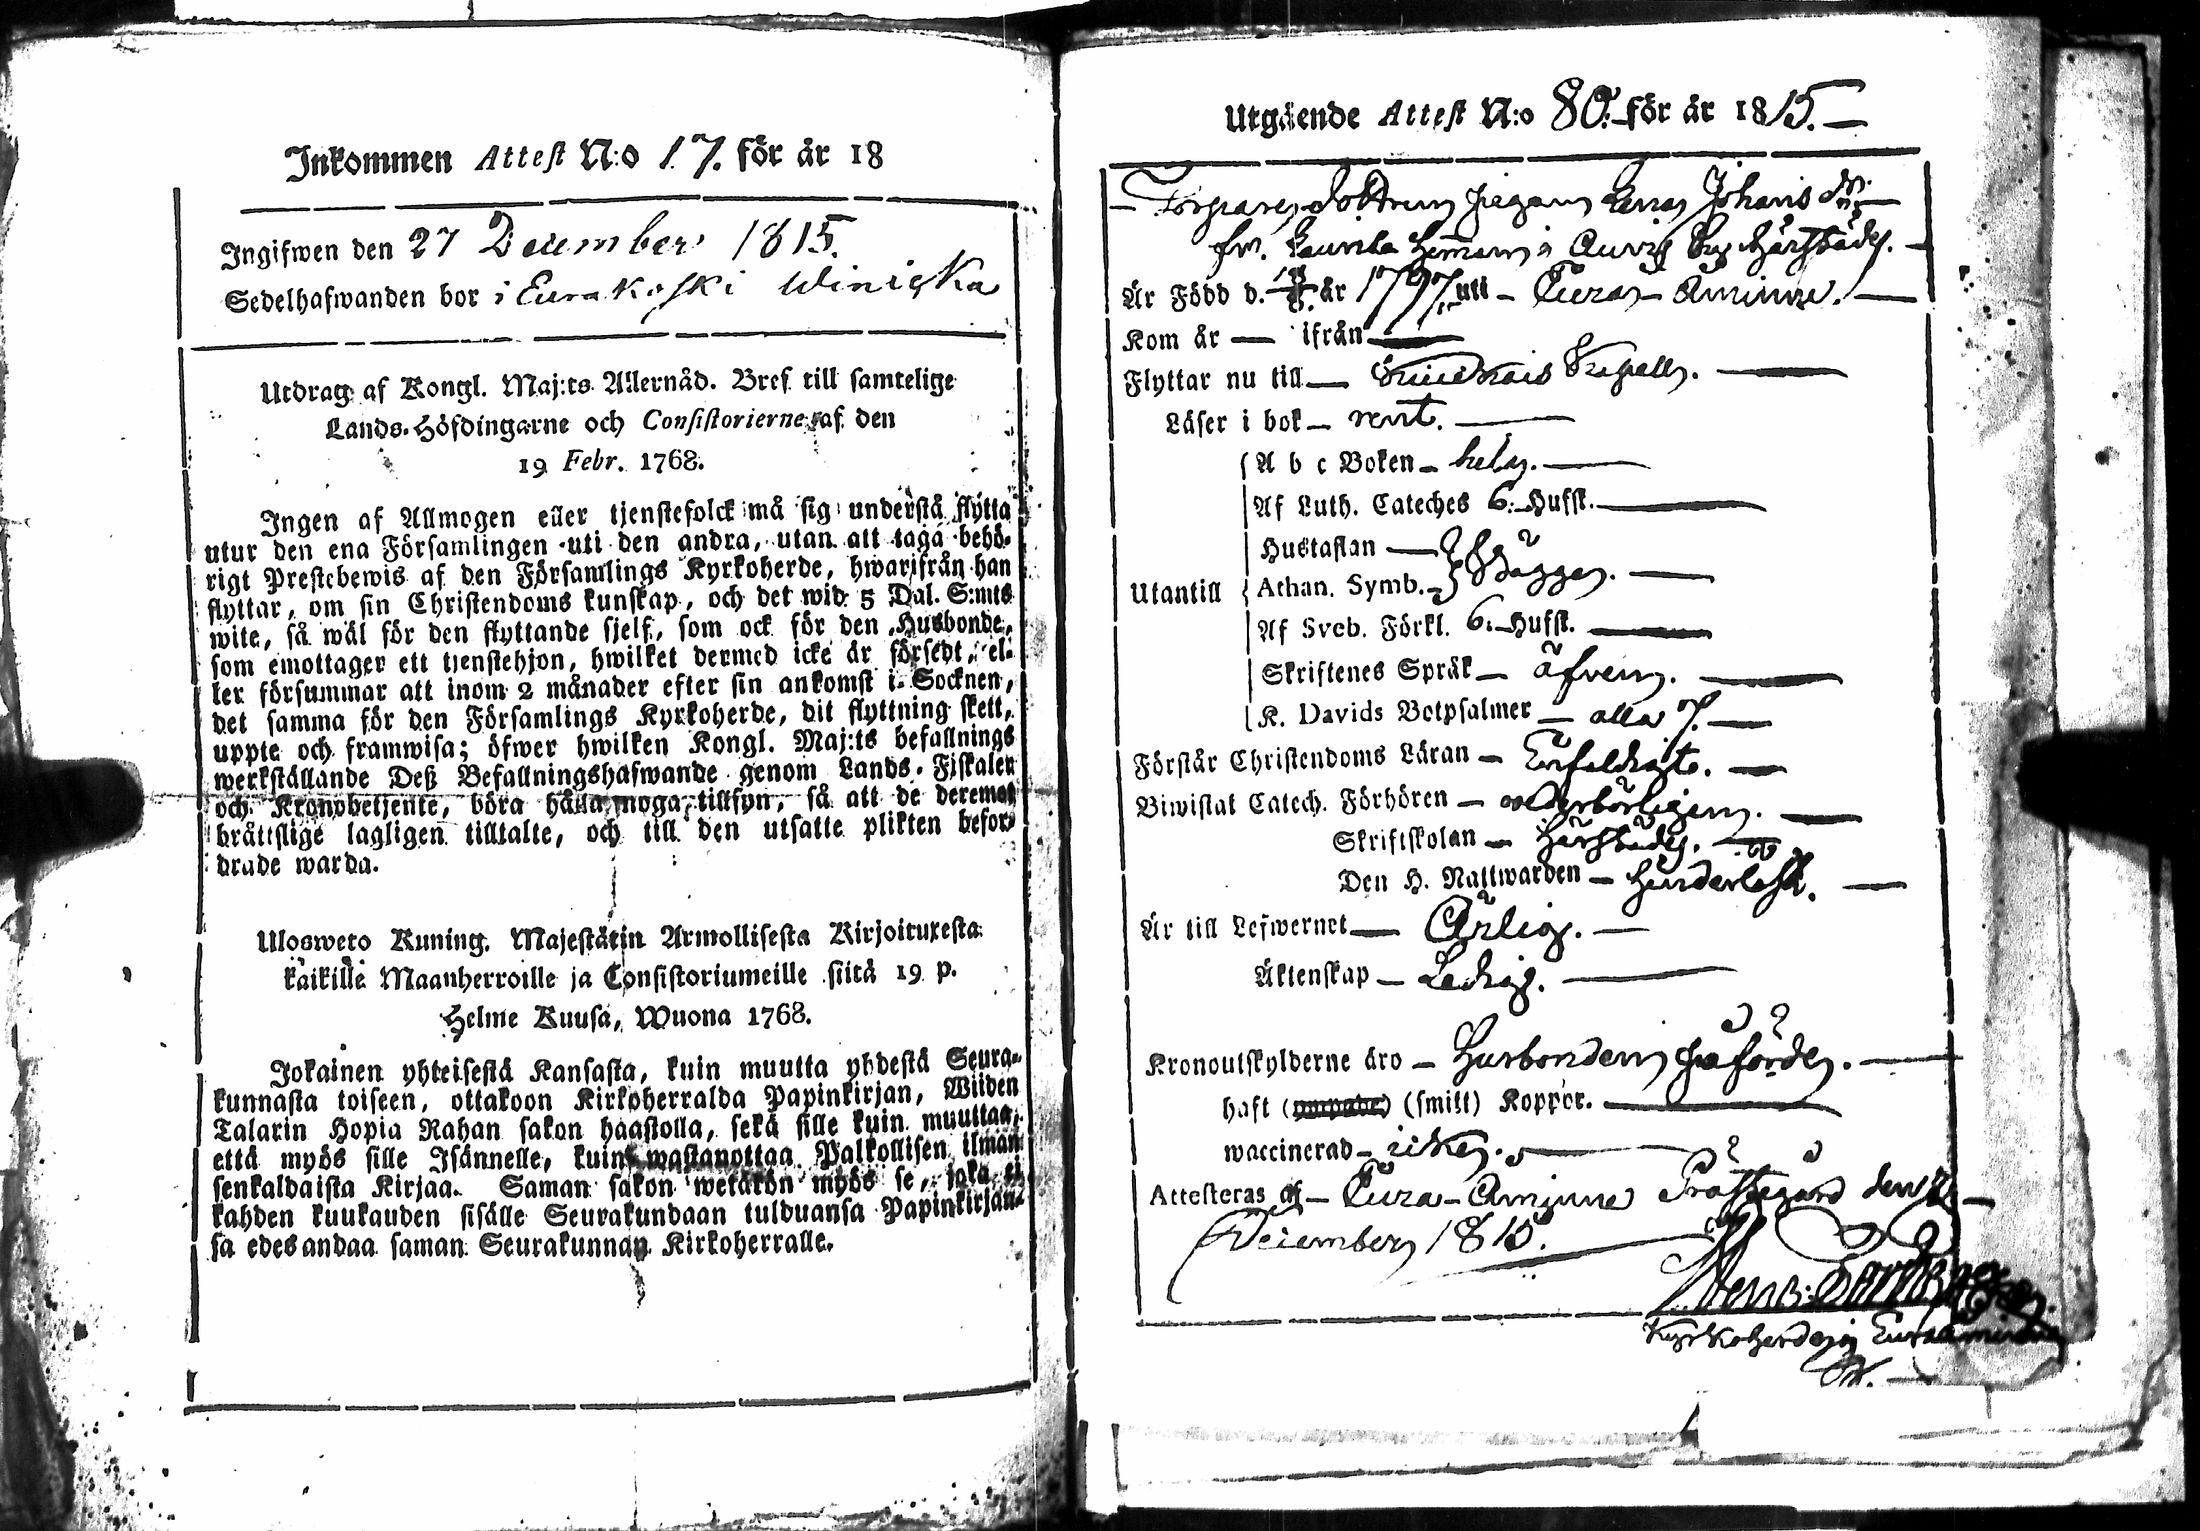 Inkommen Attest N:o 17. för år 18
Ingifwen den 27 December 1815.
Sedelhafwanden bor i Eurakoski Winicka
Utdrag af Kongl. Maj:ts Allernåd. Bref till samtelige
Lands-Höfdingarne och Consistorierne af den
19 Febr. 1768.
Ingen af Allmogen eller tjenstefolck må sig understå flytta
utur den ena Församlingen uti den andra, utan att taga behö-
rigt Prestebewis af den Församlings Kyrkoherde, hwarifrån han
flyttar, om sin Christendoms kunskap, och det wid 5 Dal. S:mts
wite, så wäl för den flyttande sjelf, som ock för den Husbonde,
som emottager ett tjenstehjon, hwilket dermed icke är försedt, el-
ler försummar att inom 2 månader efter sin ankomst i Socknen,
det samma för den Församlings Kyrkoherde, dit flyttning skett,
uppte och framwisa; öfwer hwilken Kongl. Maj:ts befallnings
werkställande Deß Befallningshafwande genom Lands-Fiskaler
och Kronobetjente, böra hålla noga tillsyn, så att de deremot
bråttslige lagligen tilltalte, och till den utsatte plikten befor-
drade warda.
Ulosweto Kuning. Majestätin Armollisesta Kirjoituxesta
kaikille Maanherroille ja Consistoriumeille siitä 19 p.
Helme Kuusa, Wuona 1768.
Jokainen yhteisestä Kansasta, kuin muutta yhdestä Seura-
kunnasta toiseen, ottakoon Kirkoherralda Papinkirjan, Wiiden
Talarin Hopia Rahan sakon haastolla, sekä sille kuin muuttaa,
että myös sille Isännelle, kuin wastanottaa Palkollisen ilman
senkaldaista Kirjaa. Saman sakon wetäkön myös se, joka ei
kahden kuukauden sisälle Seurakundaan tulduansa Papinkirjan-
sa edesandaa saman Seurakunnan Kirkoherralle.
Utgående Attest N:o 80. för år 1815.
Torpare dottren pigan Johans dr.
fr. Hemman i
Är Född d. år 1797 uti Eura Åminne.
Kom år — ifrån
Flyttar nu till Kapell.
Läser i bok rent.
A b c Boken hela.
Af Luth. Cateches 6. Hufst.
Hustaflan
Utantill Athan. Symb. Bägge.
Af Sveb. Förkl. 6. Hufst.
Skriftenes Språk äfven.
K. Davids Botpsalmer alla 7.
Förstår Christendoms Läran Enfaldigt.
Biwistat Catech. Förhören wederbörligen.
Skriftskolan
Den H. Nattwarden
Är till Lefwernet Ärlig.
Äktenskap Ledig.
Kronoutskylderne äro Husbonden påförde.
haft (smitt) Koppor.
waccinerad icke.
Attesteras af Eura-Åminne Prästegård den
December 1815.
Kyrkoherde i Euraåminne